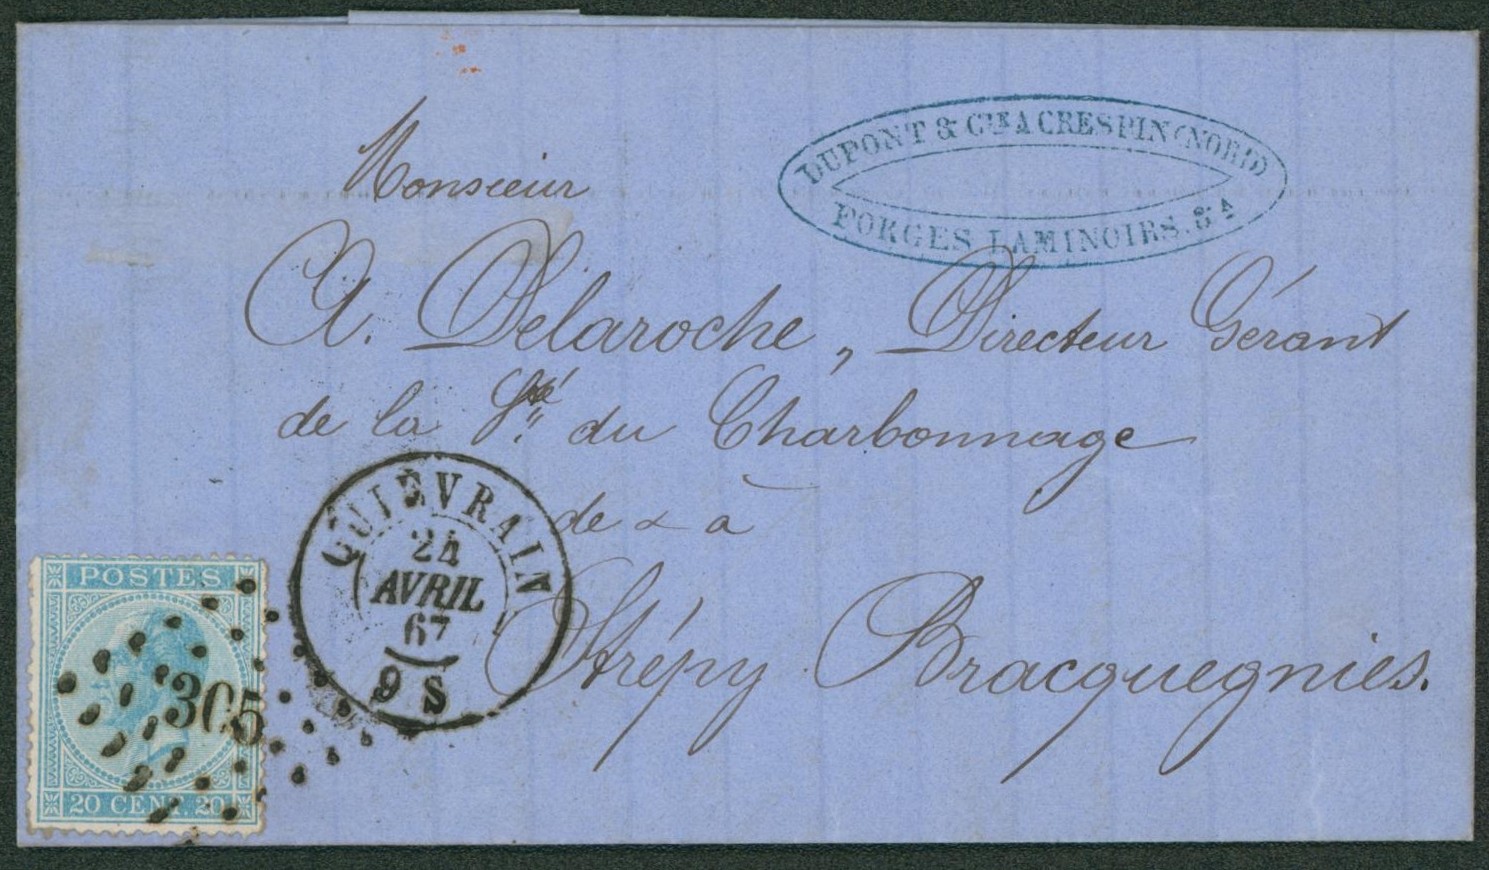 DUPONT & CIE A CRESPIN (NORD)
FORGES LAMINOIRS. &A
Monsieur
A. Delaroche, Directeur Gérant
de la Sté du Charbonnage
de & à
Strépy Bracquegnies.
QUIÉVRAIN
24
AVRIL
67
9 S
POSTES
305
20 CENT. 20